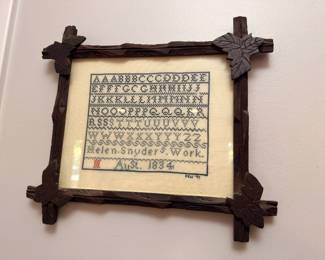 AAABBBCCCDDDEE
EFFFGGGHHHIIJJ
JKKKLLLMMMNNN
NOOOPPPQQQRR
RSSSTTTUUUVVV
WWWXXXYYYZZ
Helen Snyders Work.
Aust. 1834